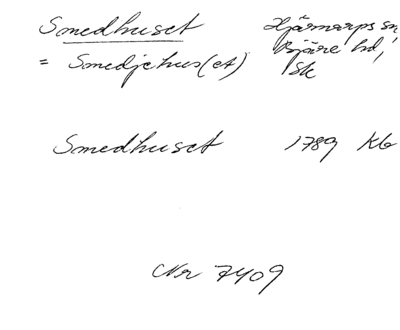 Smedhuset Hjärnarps sn
= Smedjehus(et) Bjäre hd,
Sk
Smedhuset 1789 Kb
Nr 7409